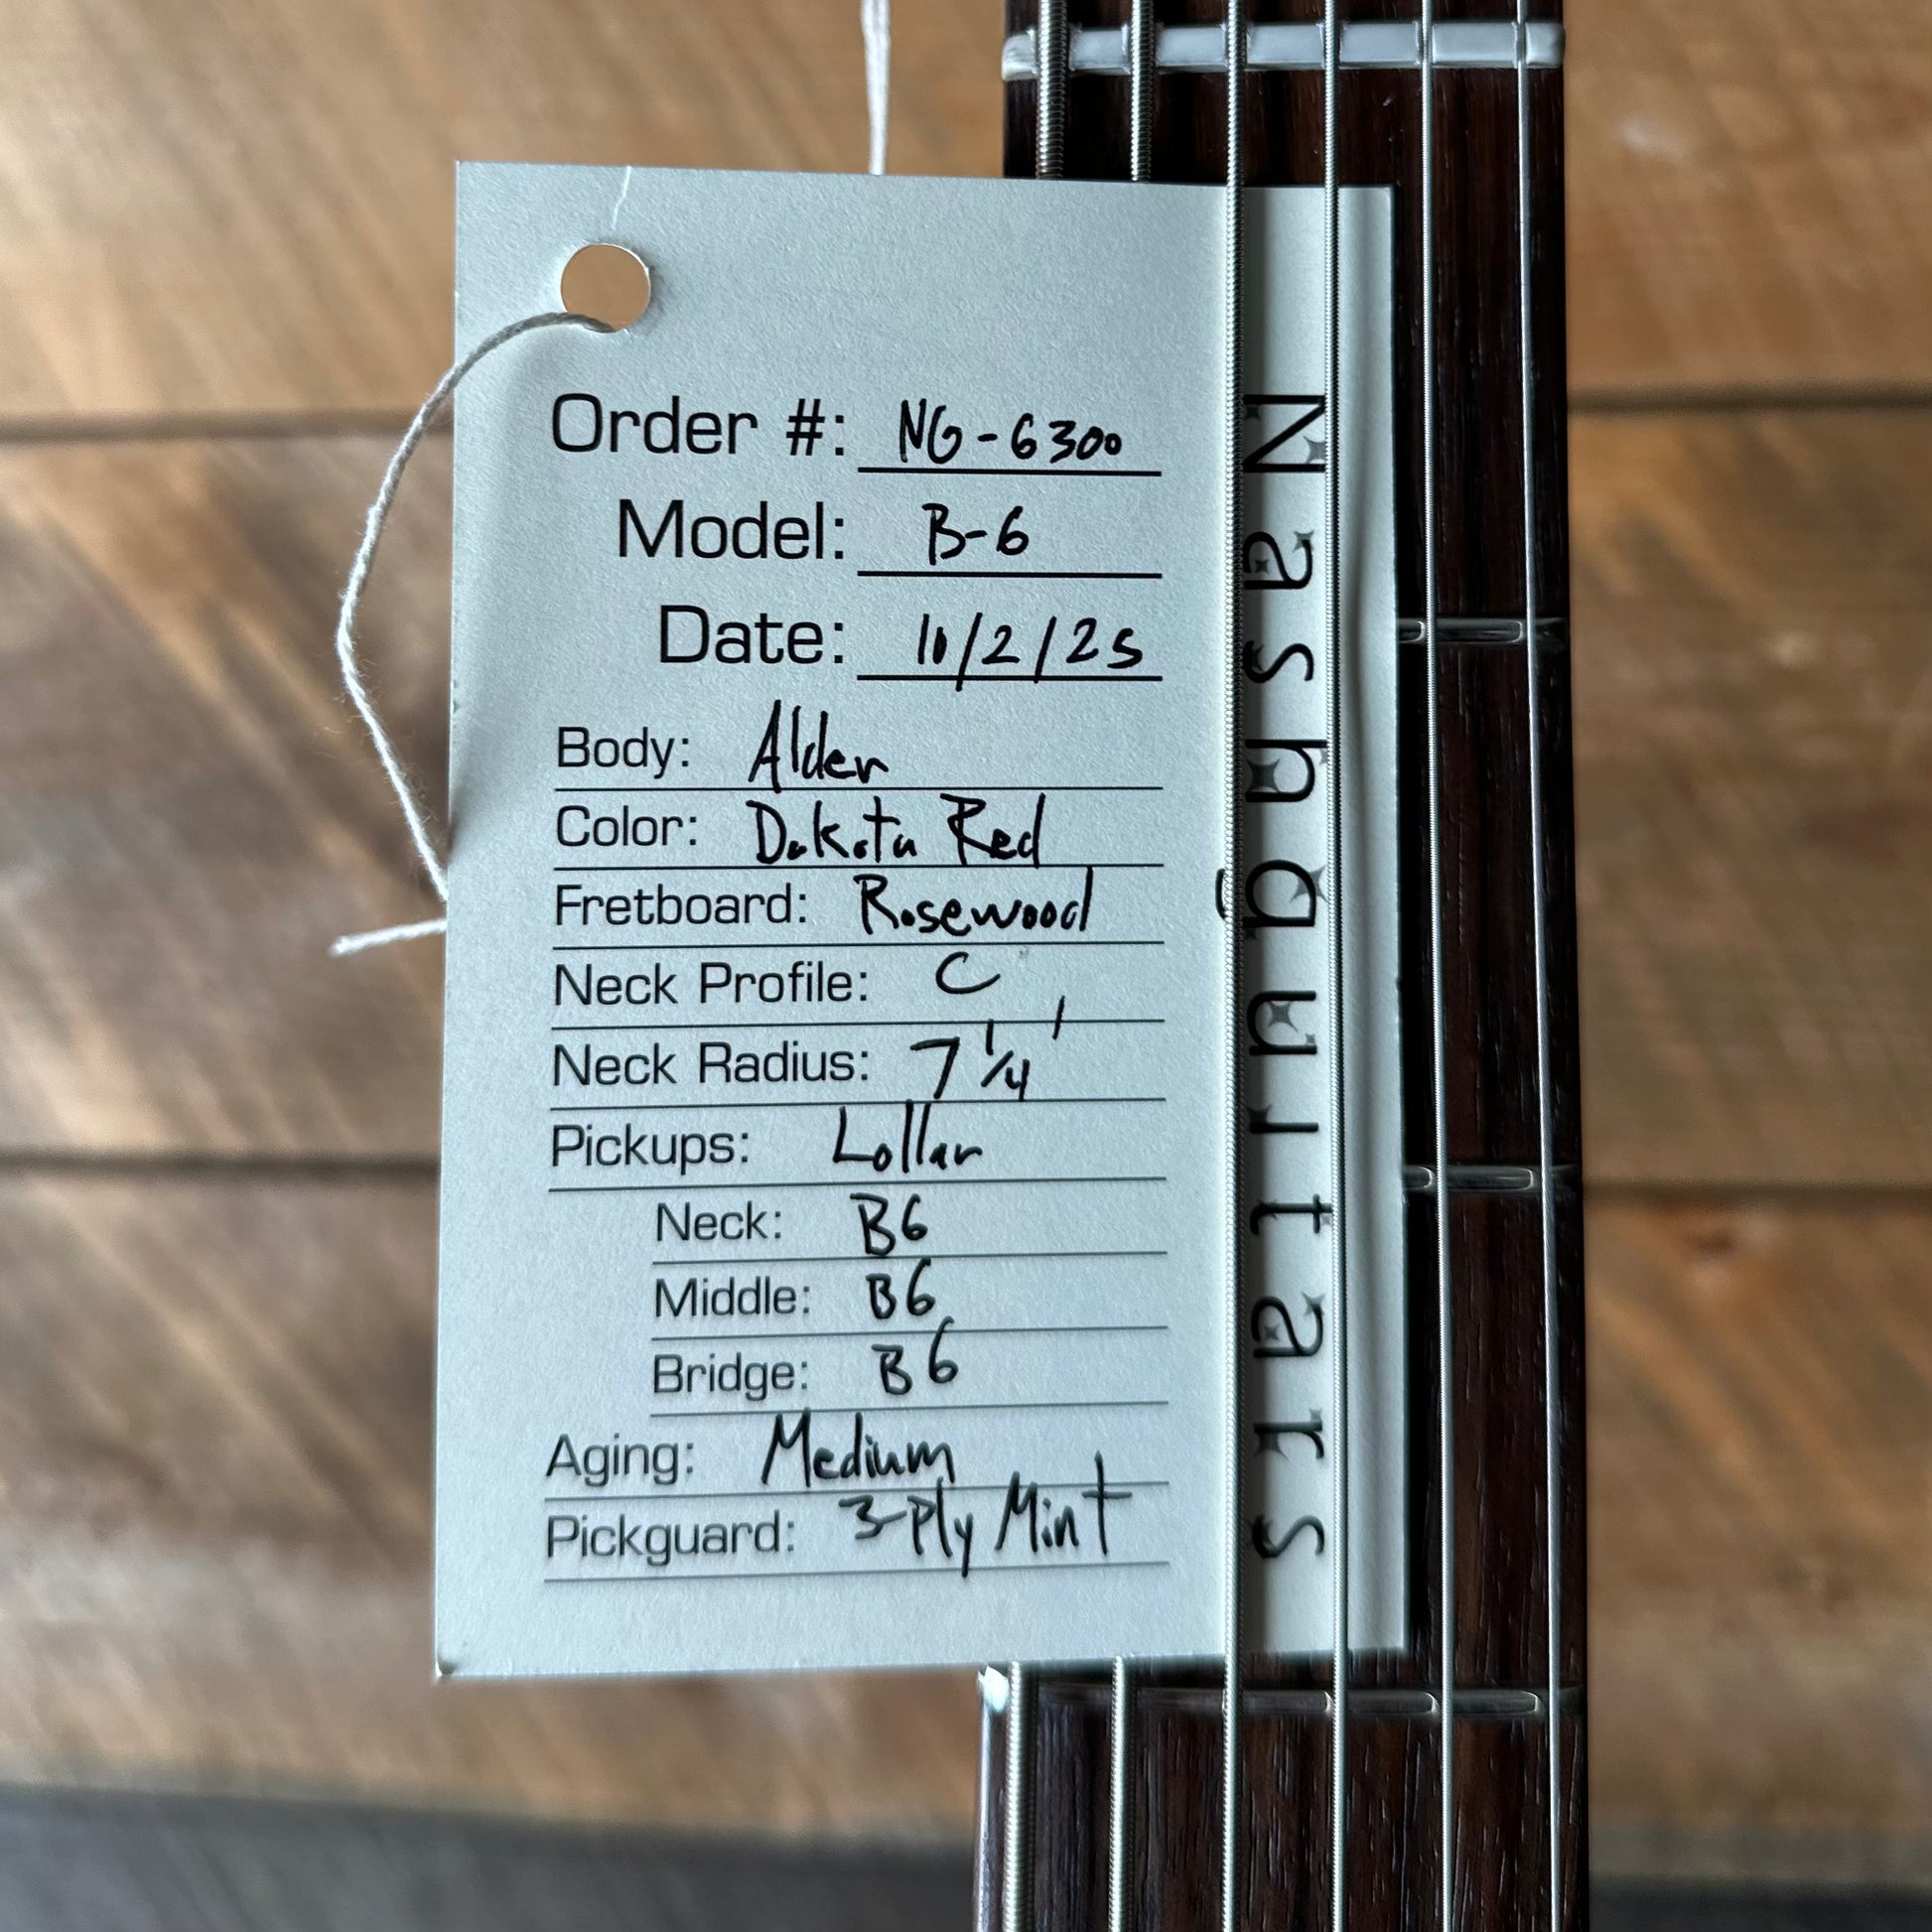 Order #: NG-6300
Model: B-6
Date: 10/2/25
Body: Alder
Color: Dakota Red
Fretboard: Rosewood
Neck Profile: C
Neck Radius: 7 1/4"
Pickups: Lollar
Neck: B6
Middle: B6
Bridge: B6
Aging: Medium
Pickguard: 3-Ply Mint
Nashguitars